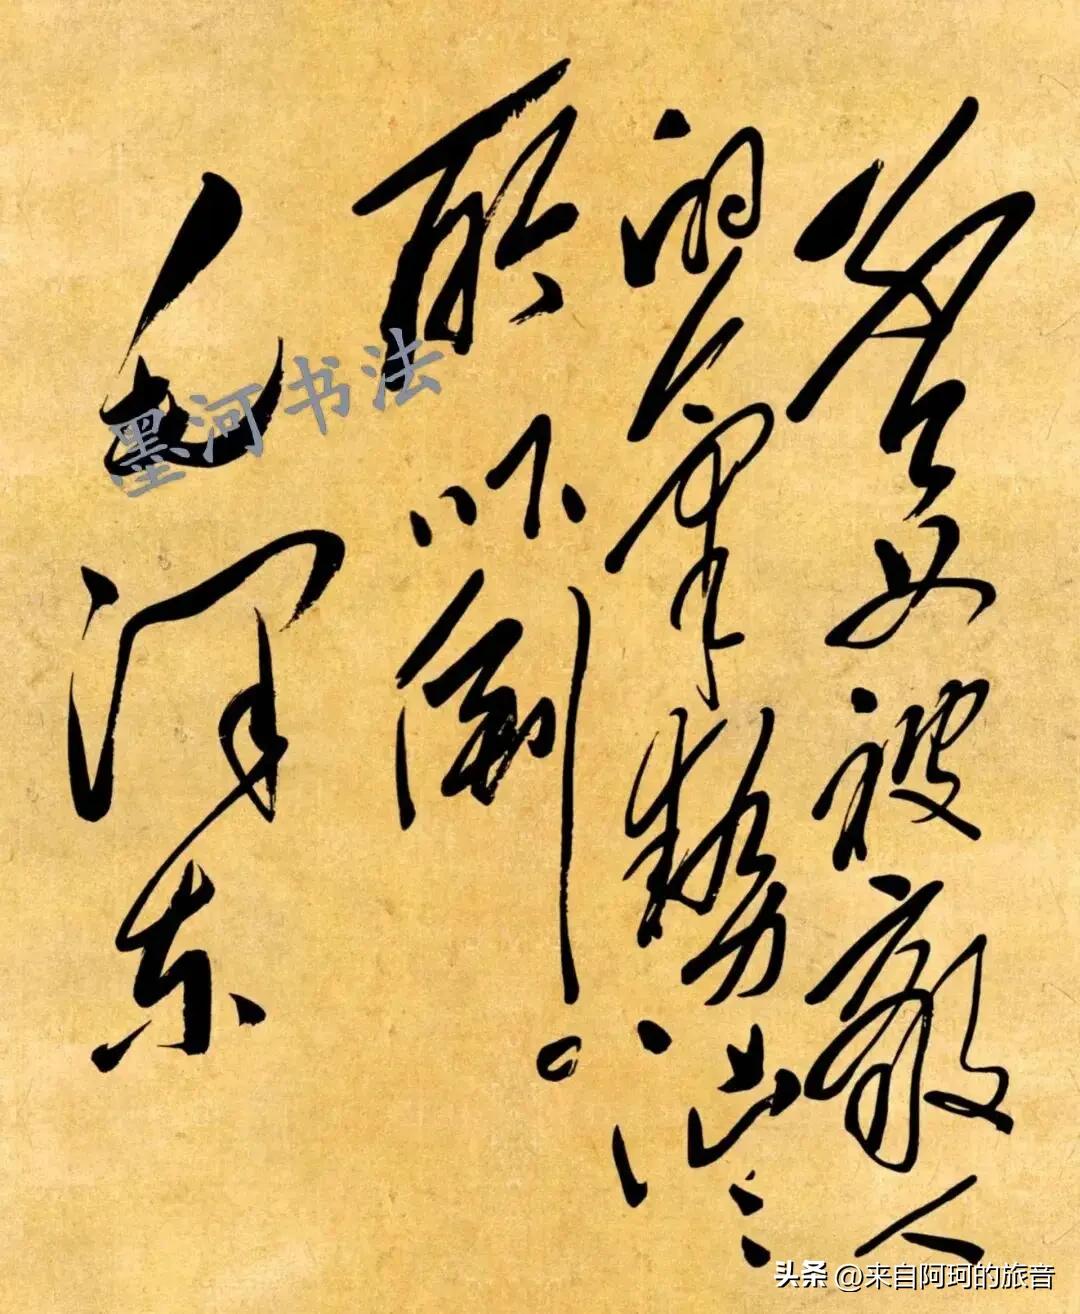 不要被敵人
的氣勢汹汹
所吓倒。
毛泽东
墨河书法
头条 @来自阿珂的旅音